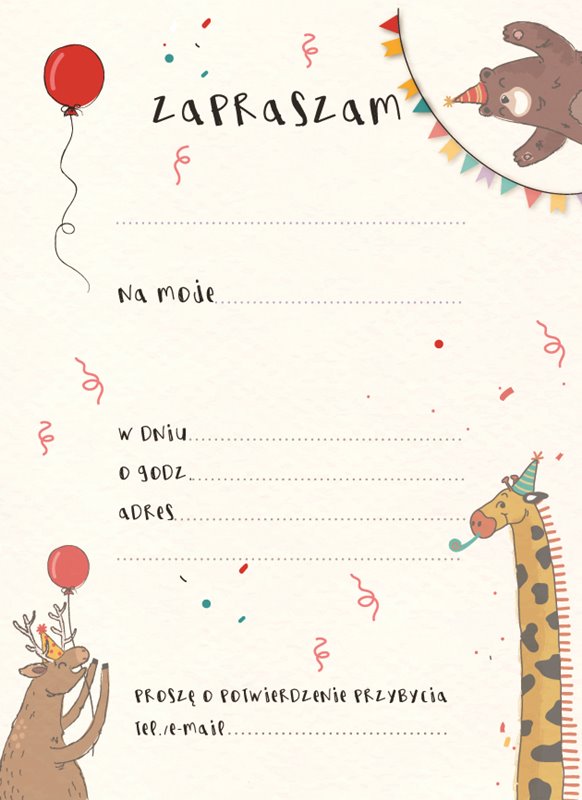 ZAPRASZAM
Na moje
W DNIU
O GODZ.
ADRES
PROSZĘ O POTWIERDZENIE PRZYBYCIA
Tel./e-mail